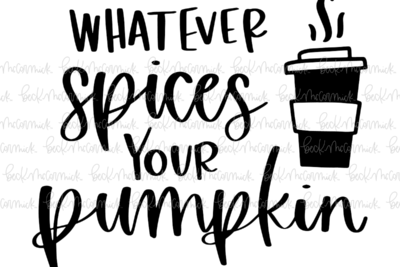 WHATEVER
spices
YOUR
pumpkin